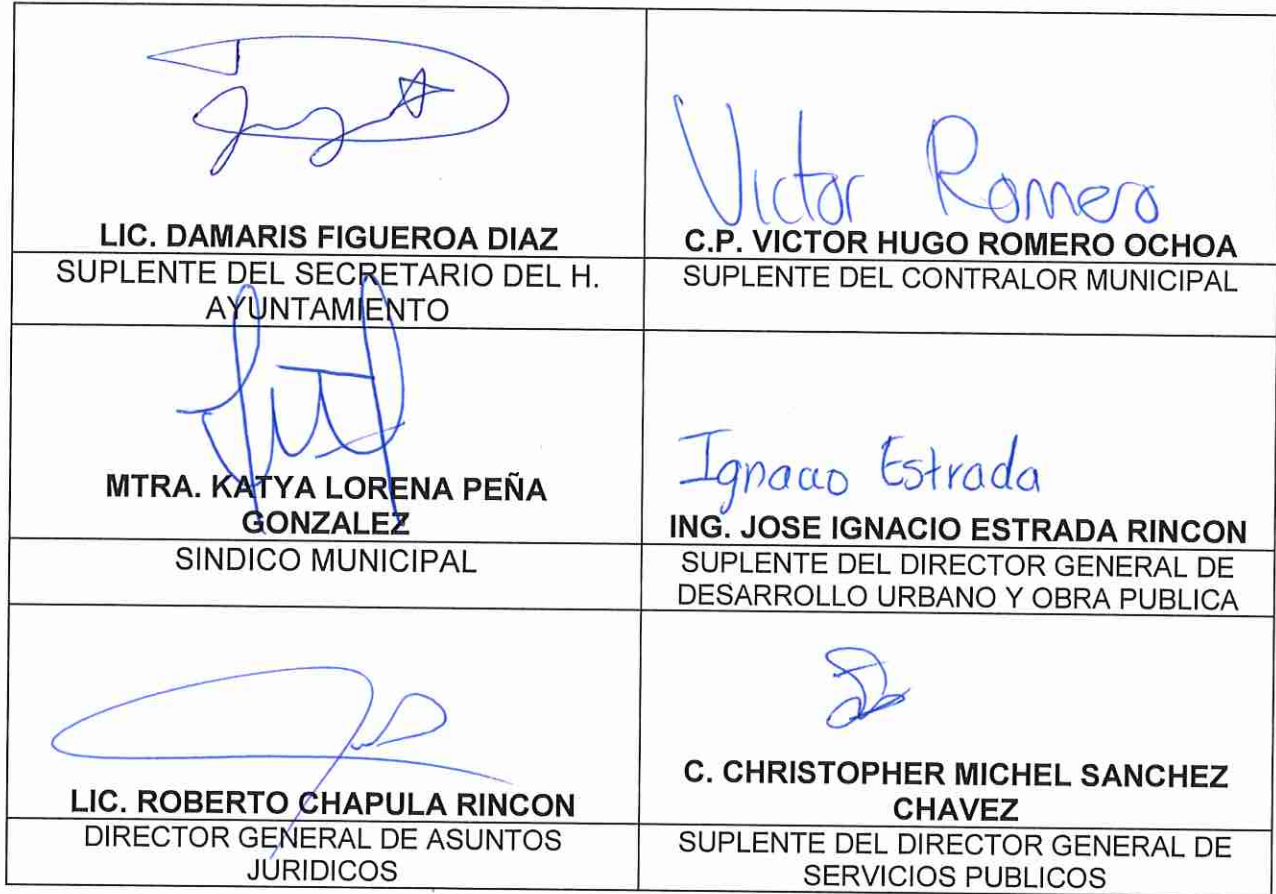 Victor Romero
LIC. DAMARIS FIGUEROA DIAZ
C.P. VICTOR HUGO ROMERO OCHOA
SUPLENTE DEL SECRETARIO DEL H.
AYUNTAMIENTO
SUPLENTE DEL CONTRALOR MUNICIPAL
MTRA. KATYA LORENA PEÑA
GONZALEZ
Ignacio Estrada
ING. JOSE IGNACIO ESTRADA RINCON
SINDICO MUNICIPAL
SUPLENTE DEL DIRECTOR GENERAL DE
DESARROLLO URBANO Y OBRA PUBLICA
LIC. ROBERTO CHAPULA RINCON
C. CHRISTOPHER MICHEL SANCHEZ
CHAVEZ
DIRECTOR GENERAL DE ASUNTOS
JURIDICOS
SUPLENTE DEL DIRECTOR GENERAL DE
SERVICIOS PUBLICOS